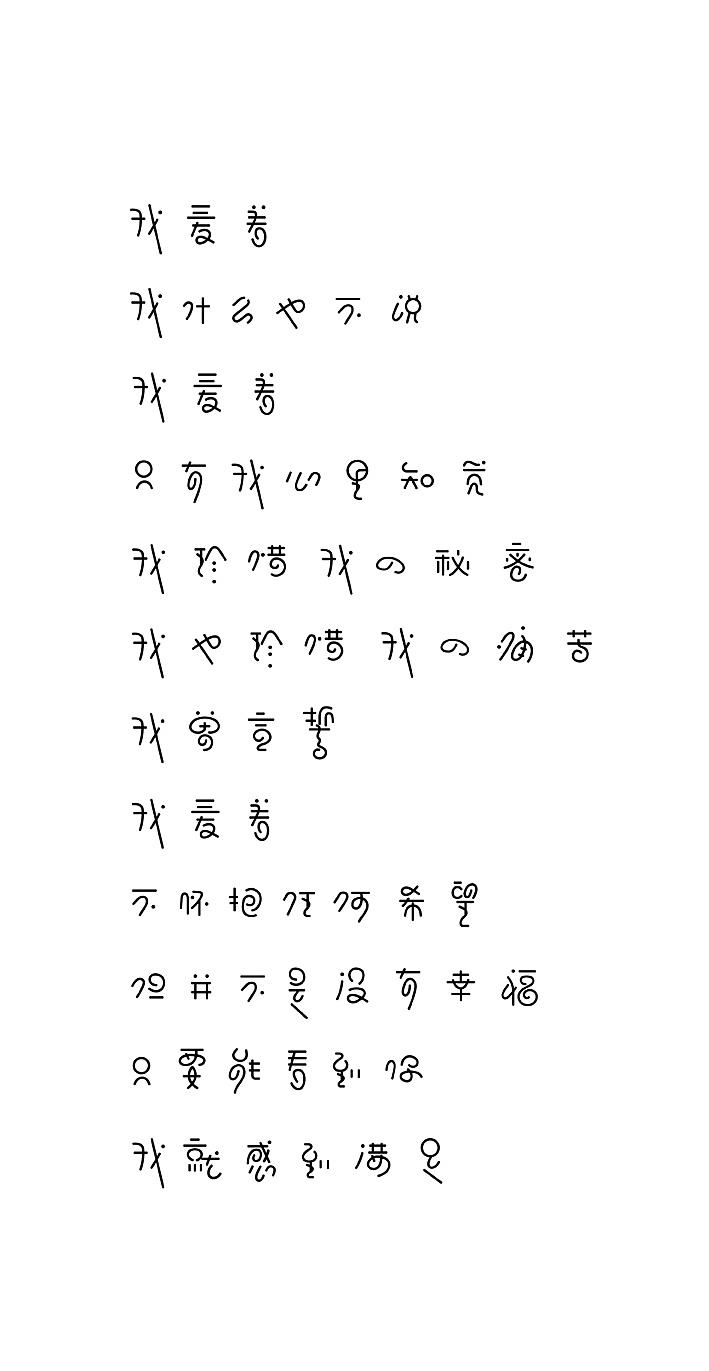 我爱着
我什么也不说
我爱着
只有我心里知觉
我珍惜我の秘密
我也珍惜我の痛苦
我曾宣誓
我爱着
不怀抱任何希望
但并不是没有幸福
只要能看到你
我就感到满足